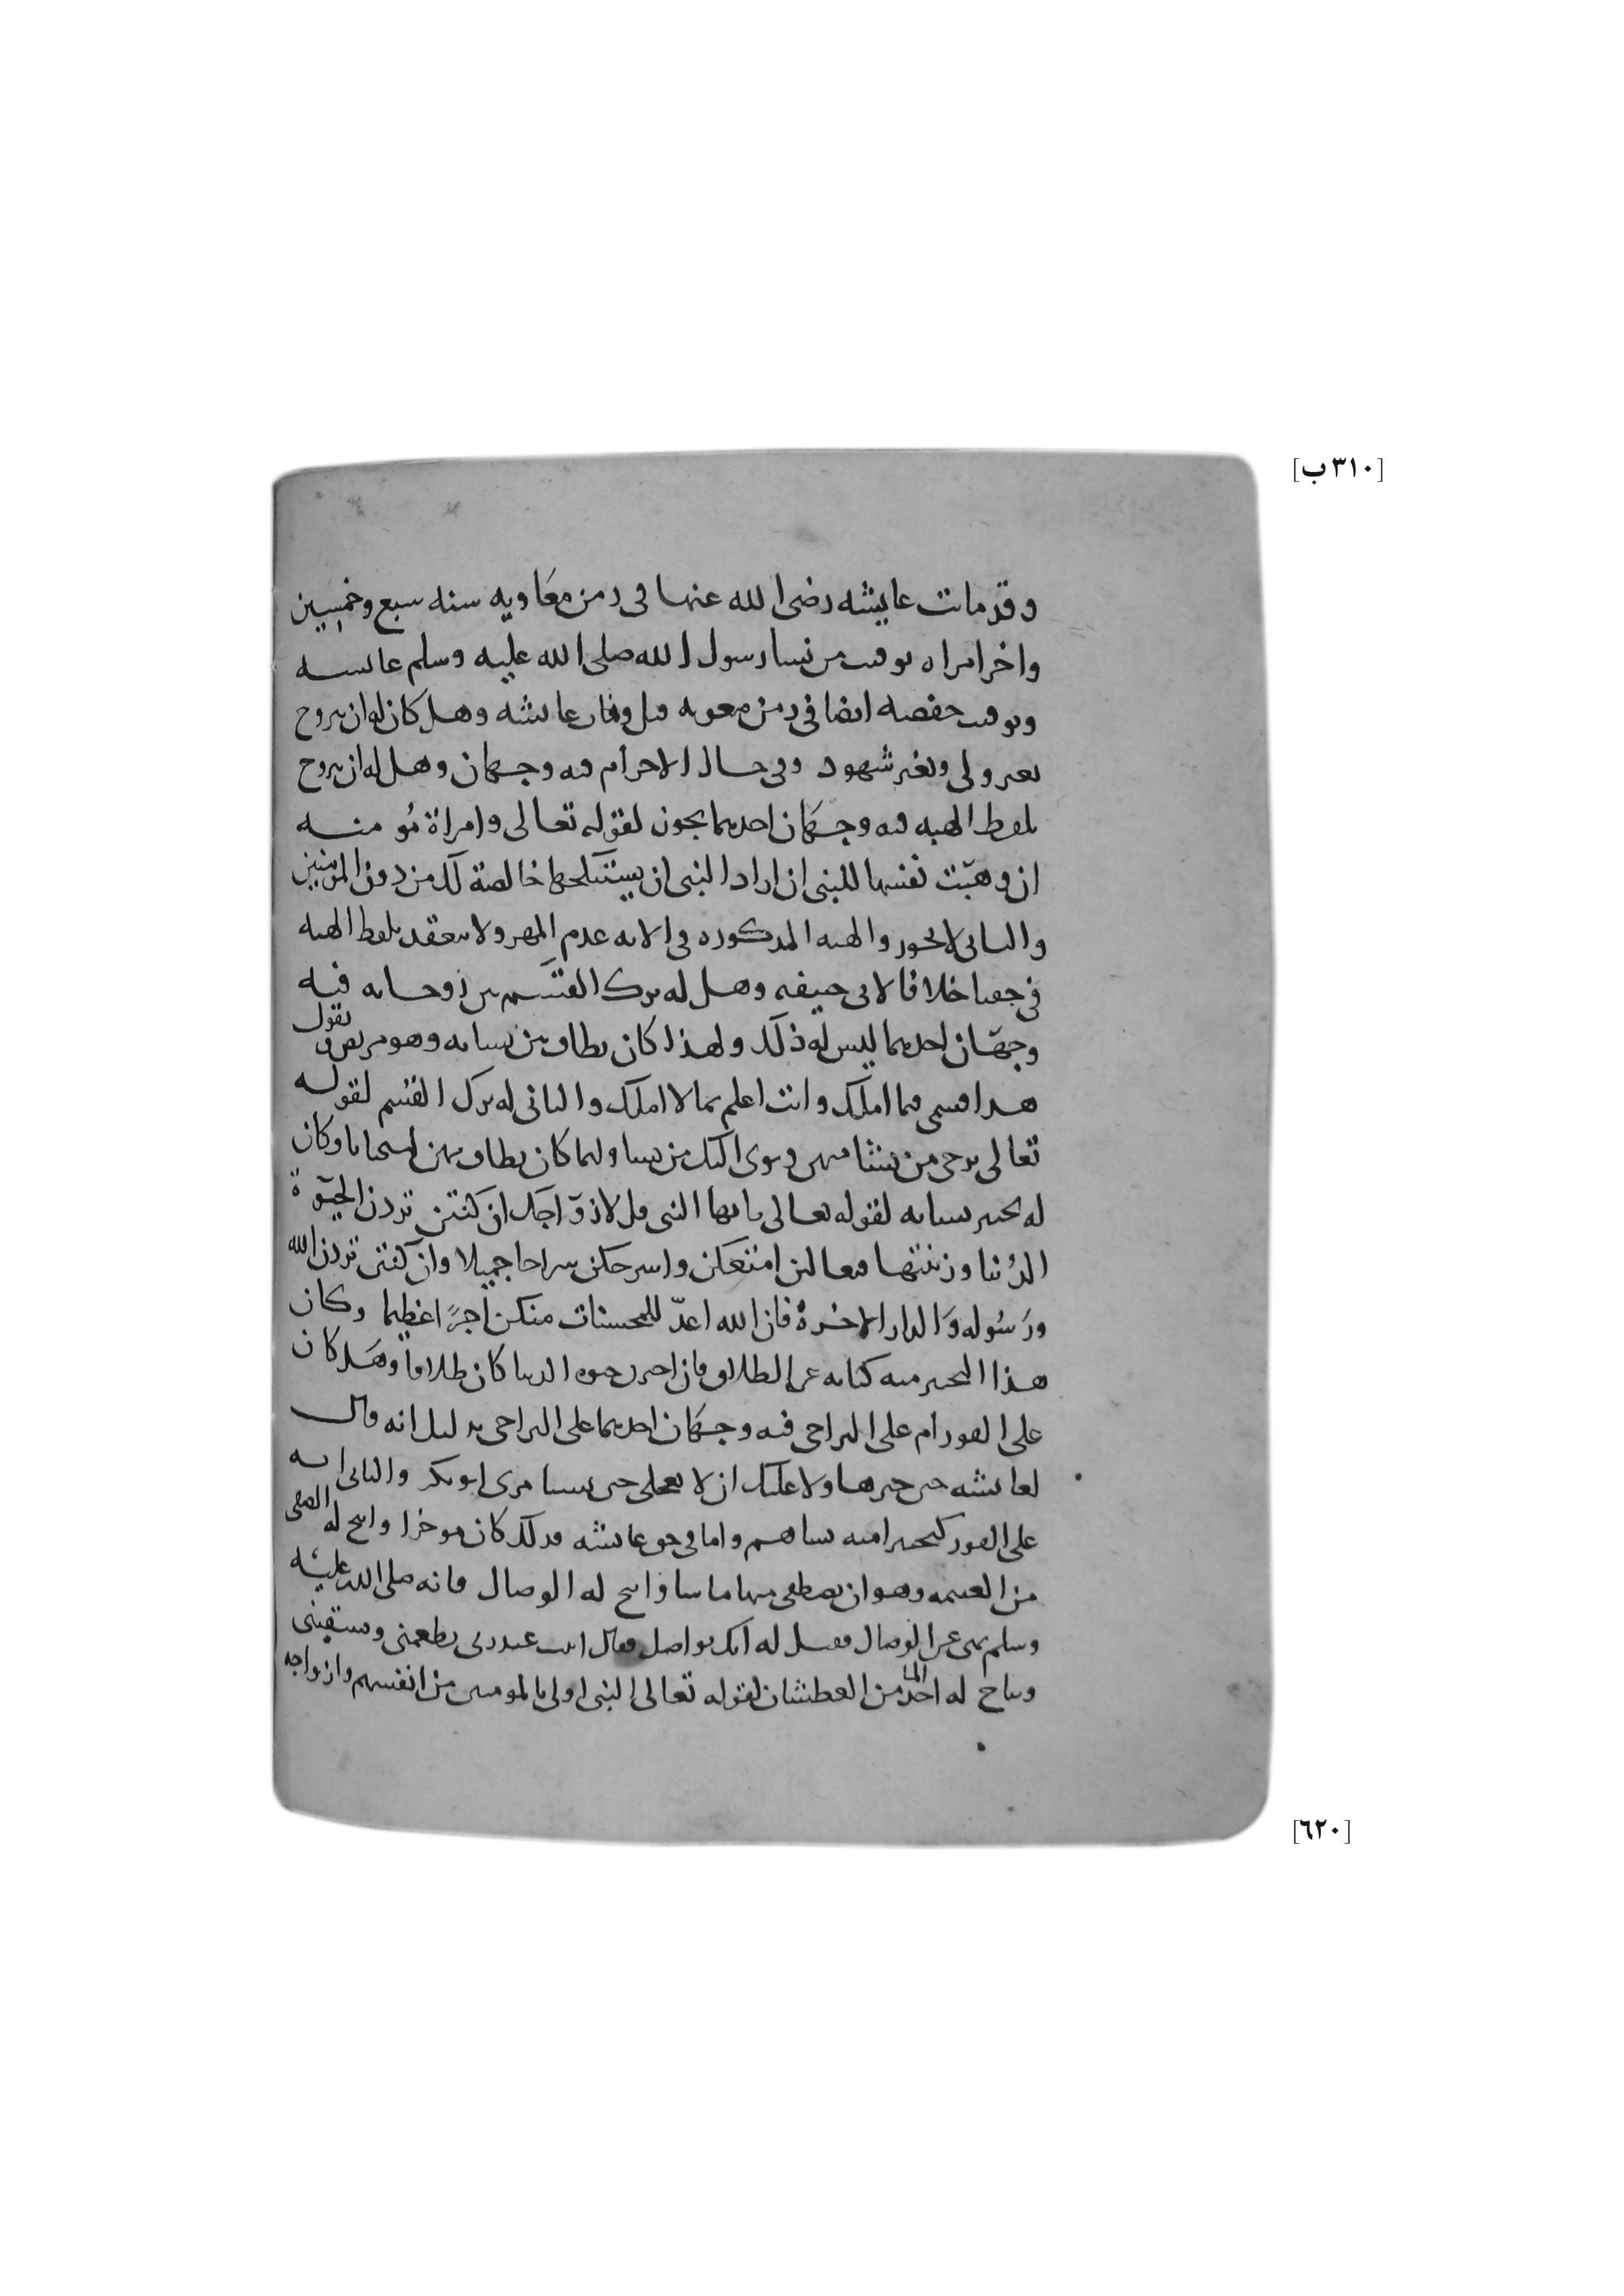 [٣١٠ ب]
وقد ماتت عايشه رضى الله عنها فى زمن معَاويه سنه سبع وخمسين
واخر امراه توفيت من نسا رسول الله صلى الله عليه وسلم عايشه
وتوفيت حفصه ايضا فى زمن معويه قبل وفاه عايشه وهل كان له ان يتزوج
بغير ولى وبغير شهود وفى حال الاحرام فيه وجهان وهل له ان يتزوج
بلفظ الهبه فيه وجهَان احدهما يجوز لقوله تعالى وامراة مُومنه
ان وهبَت نفسها للنبى ان اراد النبى ان يستنكحها خالصة لك من دون المومنين
والثانى لا يجوز والهبه المذكوره فى الايه عدم المهر ولا ينعقد بلفظ الهبه
فى حقنا خلافا لابى حنيفه وهل له ترك القسَم بين زوجاته فيه
وجهَان احدهما ليس له ذلك ولهذا كان يطاف بين نسايه وهو مريض ويقول
هذا قسمى فيما املك وانت اعلم بما لا املك والثانى له ترك القسْم لقوله
تعالى ترجى من تشا منهن وتوى اليك من تشا وانما كان يطاف بهن استحبابا وكان
له تخيير نسايه لقوله تعالى يا ايها النبى قل لازوَاجك ان كنتن تردن الحيَوة
الدُنيا وزينتها فتعالين امتعكن واسرحكن سراحا جميلا وان كنتن تردن الله
ورَسُوله وَالدار الاخرة فان الله اعدّ للمحسنات منكن أجرًا عظيما وكان
هذا التخيير منه كنايه عن الطلاق فان اخترن حيوه الدنيا كان طلاقا وهَل كان
على الفور ام على التراخى فيه وجهَان احدهما على التراخى بدليل انه قال
لعايشه حين خيرها ولا عليك ان لا تعجلى حتى تستامرى ابو بكر والثانى انه
على الفور كتخيير امته نساهم واما فى حق عايشه فذلك كان موخرا وابيح له الصفى
من الغنيمه وهو ان يصطفى منها ما شا وابيح له الوصال فانه صلى الله عليه
وسلم نهى عن الوصال فقيل له انك تواصل فقال ابيت عند ربى يطعمنى ويسقينى
ويباح له اخذ الما من العطشان لقوله تعالى النبى اولى بالمومنين من انفسهم وازواجه
[٦٢٠]